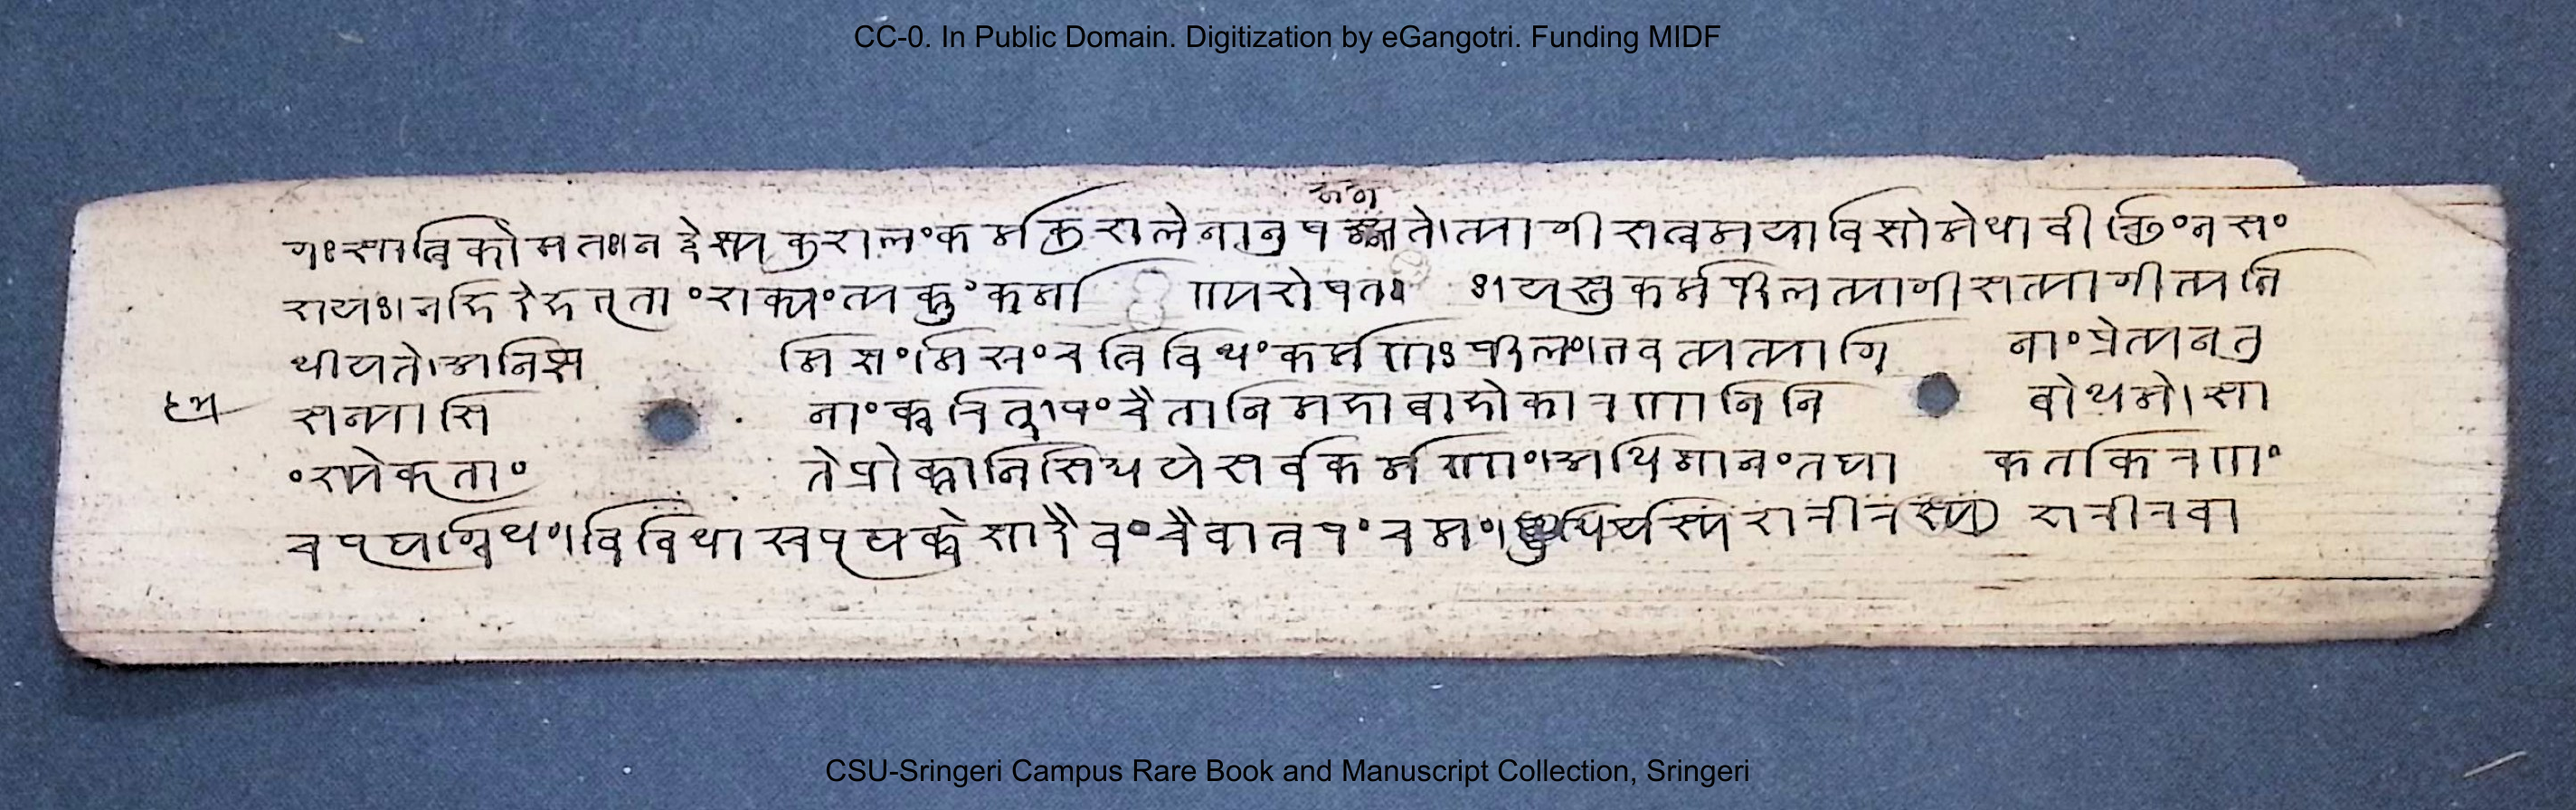 CC-0. In Public Domain. Digitization by eGangotri. Funding MIDF
गः सात्विको मतः । न द्वेष्ट्यकुशलं कर्म कुशले नानुषज्जते । त्यागी सत्वसमाविष्टो मेधावी छिंनसं
शयः । नहि देहभृतां शक्यं त्यक्तुं कर्माण्यशेषतः । यस्तु कर्मफलत्यागी स त्यागीत्यभि
धीयते । अनिष्टमिष्टं मिश्रं च त्रिविधं कर्मणः फलं । भवत्यत्यागिनां प्रेत्य न तु
सन्यासिनां क्वचित् । पंचैतानि महाबाहो कारणानि निबोध मे । सा
ंख्ये कृतांते प्रोक्तानि सिध्धये सर्वकर्मणां । अधिष्ठानं तथा कर्ता करणं
च पृथग्विधं । विविधाश्च पृथक्चेष्टा दैवं चैवात्र पंचमं । शरीरवा
CSU-Sringeri Campus Rare Book and Manuscript Collection, Sringeri